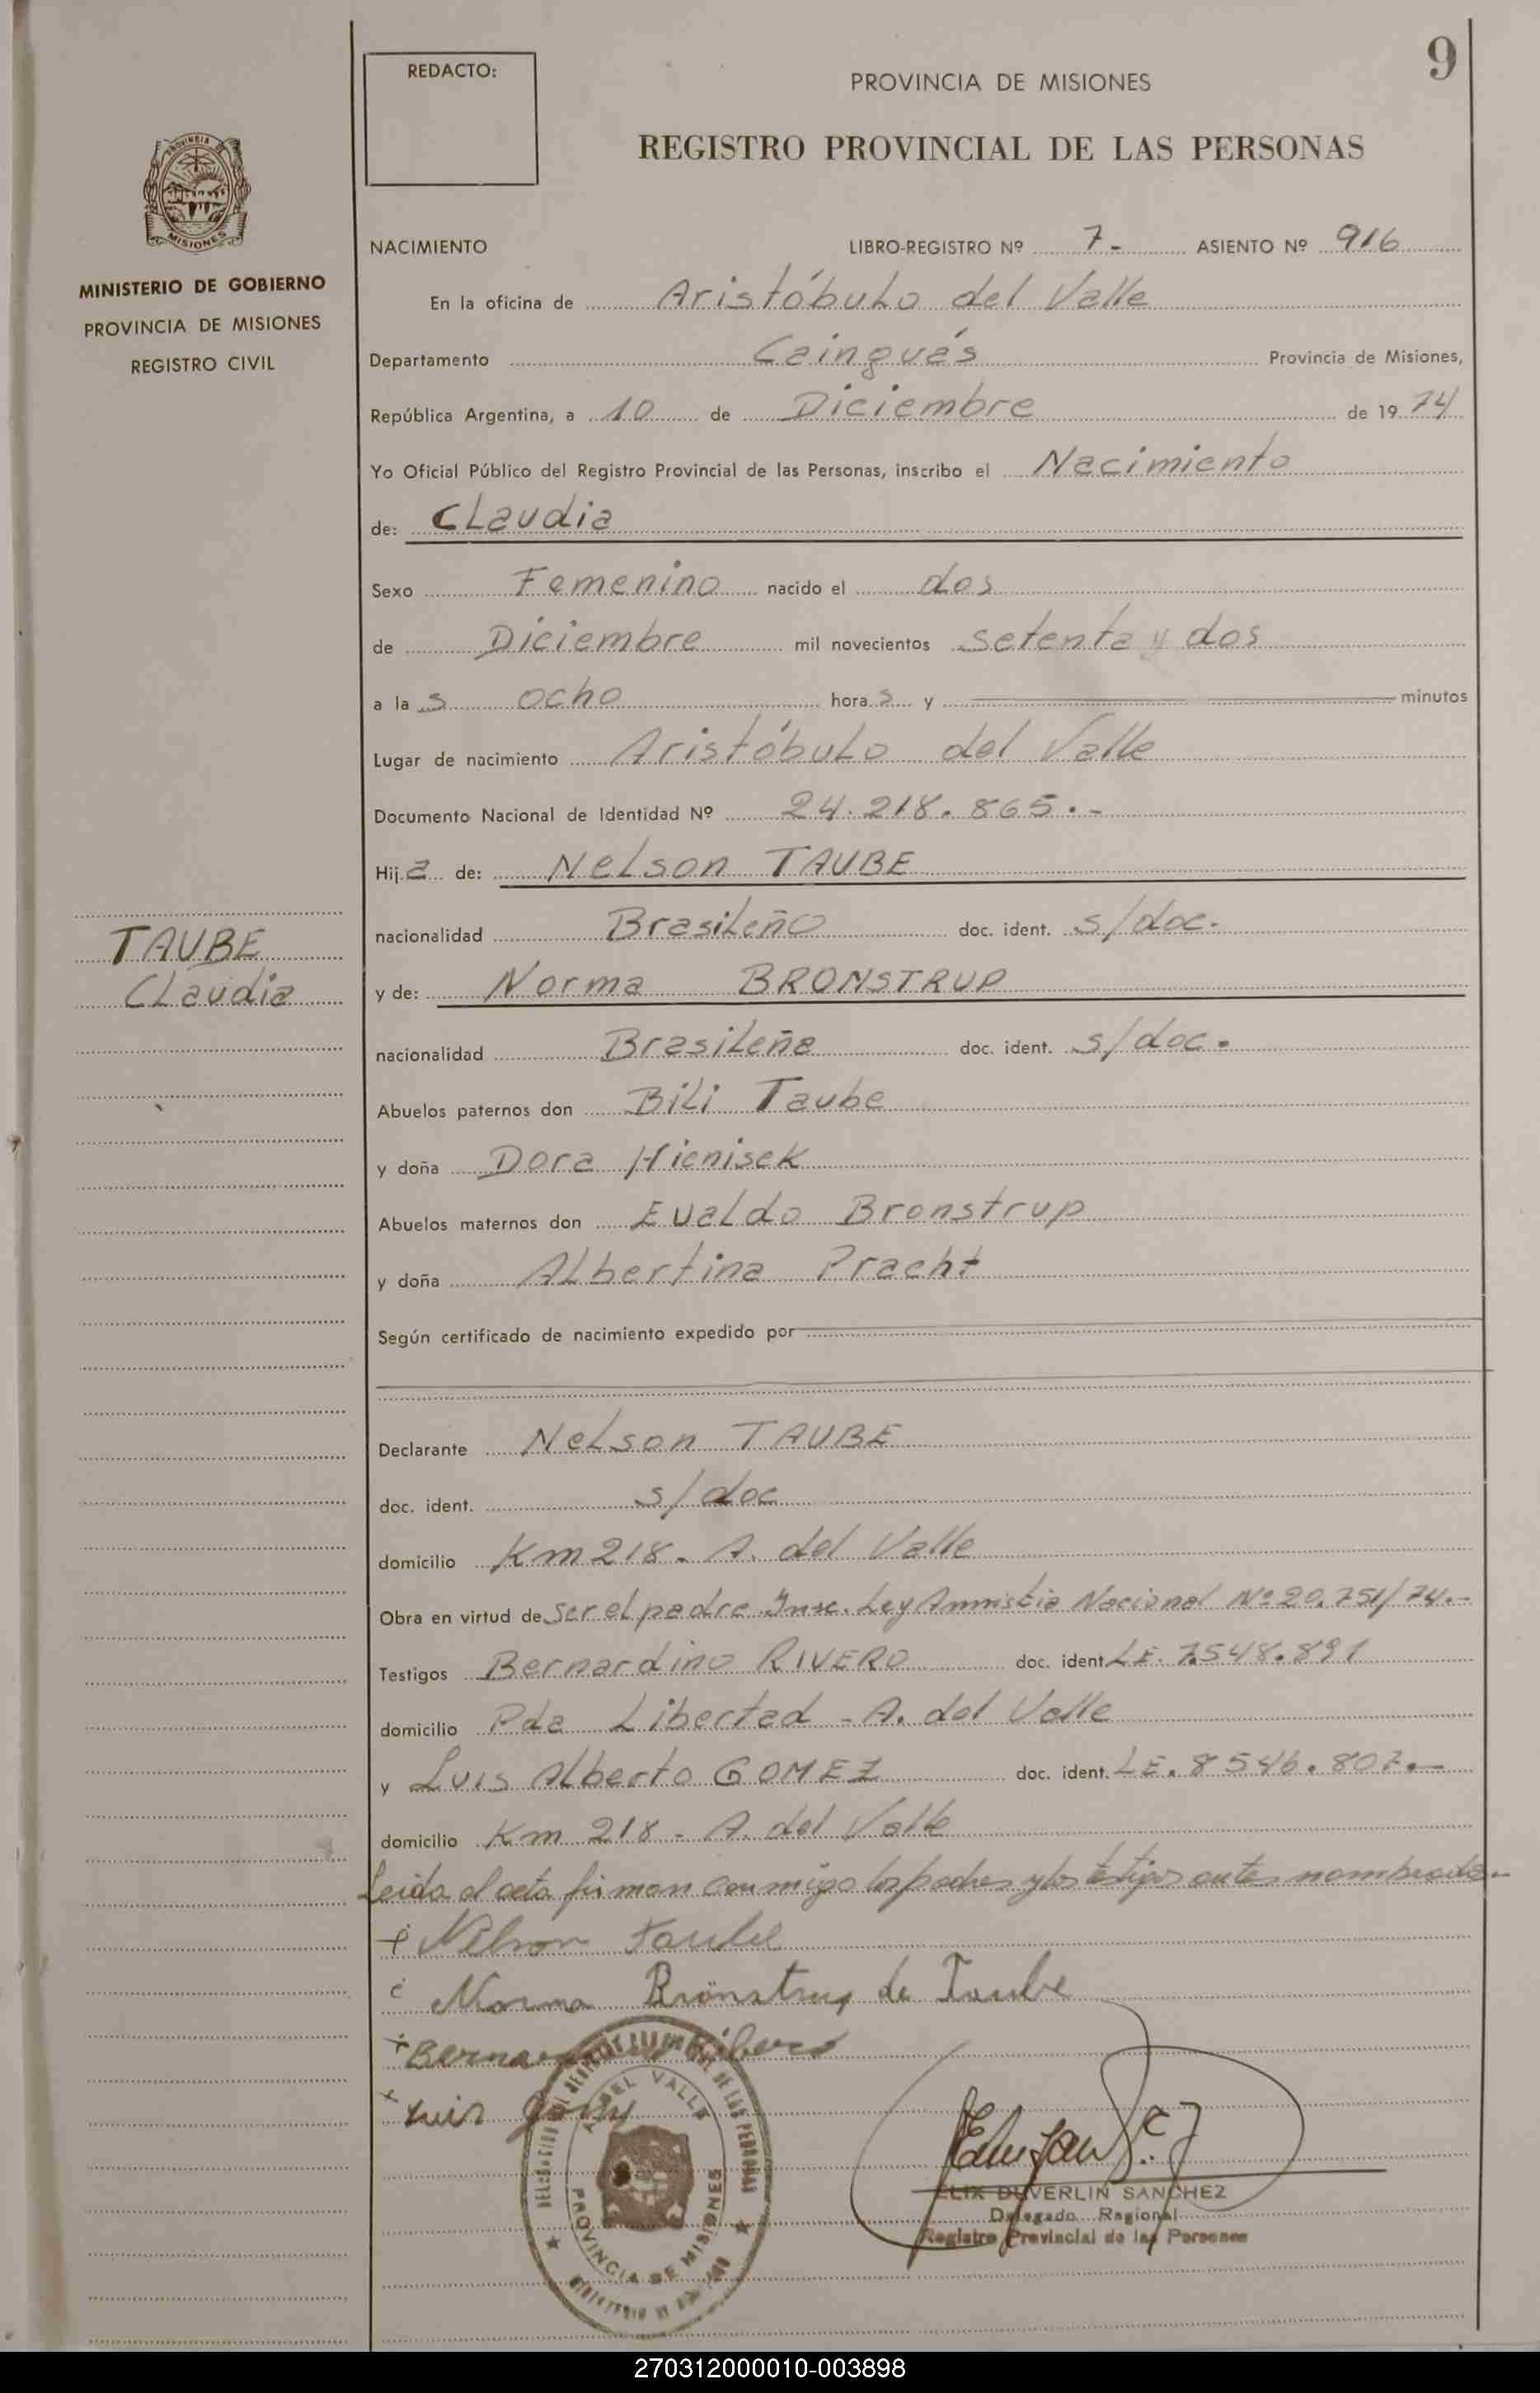 9
REDACTO:
PROVINCIA DE MISIONES
REGISTRO PROVINCIAL DE LAS PERSONAS
MISIONES
MINISTERIO DE GOBIERNO
PROVINCIA DE MISIONES
REGISTRO CIVIL
NACIMIENTO LIBRO-REGISTRO Nº 7- ASIENTO Nº 916
En la oficina de Aristóbulo del Valle
Departamento Cainguás Provincia de Misiones,
República Argentina, a 10 de Diciembre de 19 74
Yo Oficial Público del Registro Provincial de las Personas, inscribo el Nacimiento
de: Claudia
Sexo Femenino nacido el dos
de Diciembre mil novecientos setenta y dos
a la s ocho hora s y minutos
Lugar de nacimiento Aristóbulo del Valle
Documento Nacional de Identidad Nº 24.218.865.-
Hij a de: Nelson TAUBE
nacionalidad Brasileño doc. ident. s/doc.
TAUBE
Claudia
y de: Norma BRONSTRUP
nacionalidad Brasileña doc. ident. s/doc.
Abuelos paternos don Bili Taube
y doña Dora Hienisek
Abuelos maternos don Evaldo Bronstrup
y doña Albertina Pracht
Según certificado de nacimiento expedido por
Declarante Nelson TAUBE
doc. ident. s/doc
domicilio Km 218. A. del Valle
Obra en virtud de ser el padre Insc. Ley Amnistia Nacional Nº 20.751/74.-
Testigos Bernardino RIVERO doc. ident. LE. 7.548.891
domicilio Pda Libertad - A. del Valle
y Luis Alberto GOMEZ doc. ident. LE. 8546.807.-
domicilio Km 218 - A. del Valle
Leida el acta firman conmigo los padres y los testigos antes nombrados.-
Nelson Taube
Norma Brönstrup de Taube
Luis
A. DEL VALLE
PROVINCIA DE MISIONES
DUVERLIN SANCHEZ
Delegado Regional
Registro Provincial de las Personas
270312000010-003898